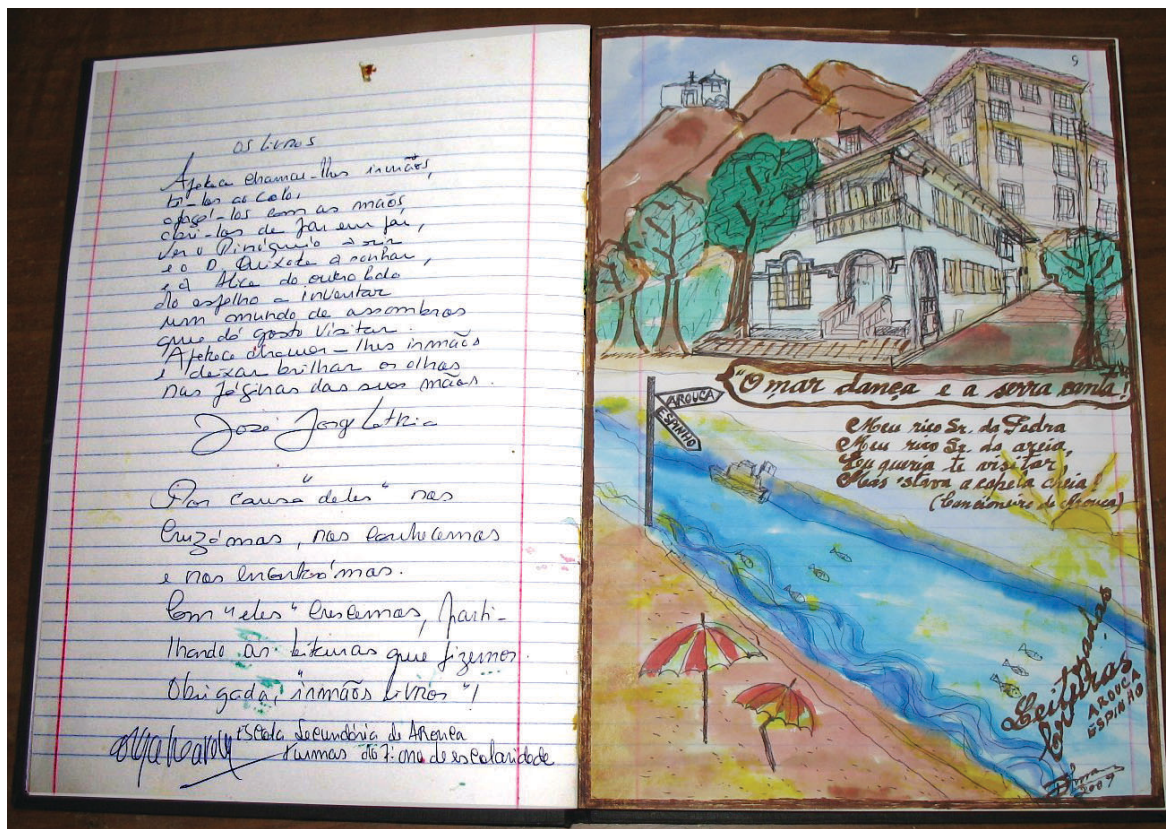 OS LIVROS
Apetece chamar-lhes irmãos,
tê-los ao colo,
afagá-los com as mãos
abri-los de par em par,
ver o Pinóquio a rir
e o D. Quixote a sonhar,
e a Alice do outro lado
do espelho a inventar
um mundo de assombros
que dá gosto visitar.
Apetece chamar-lhes irmãos
e deixar brilhar os olhos
nas páginas das suas mãos.
José Jorge Letria
Por causa "deles" nos
cruzámos, nos conhecemos
e nos encontrámos.
Com "eles" crescemos, parti-
lhando as leituras que fizemos.
Obrigada, "irmãos livros"!
Escola Secundária de Arouca
turmas do 7º ano de escolaridade
5
"O mar dança e a serra canta!
AROUCA
ESPINHO
Meu rico Sr. da Pedra
Meu rico Sr. da areia,
Eu queria te visitar,
Mas 'stava a capela cheia!
(Cancioneiro de Arouca)
Leituras
AROUCA
ESPINHO
2009